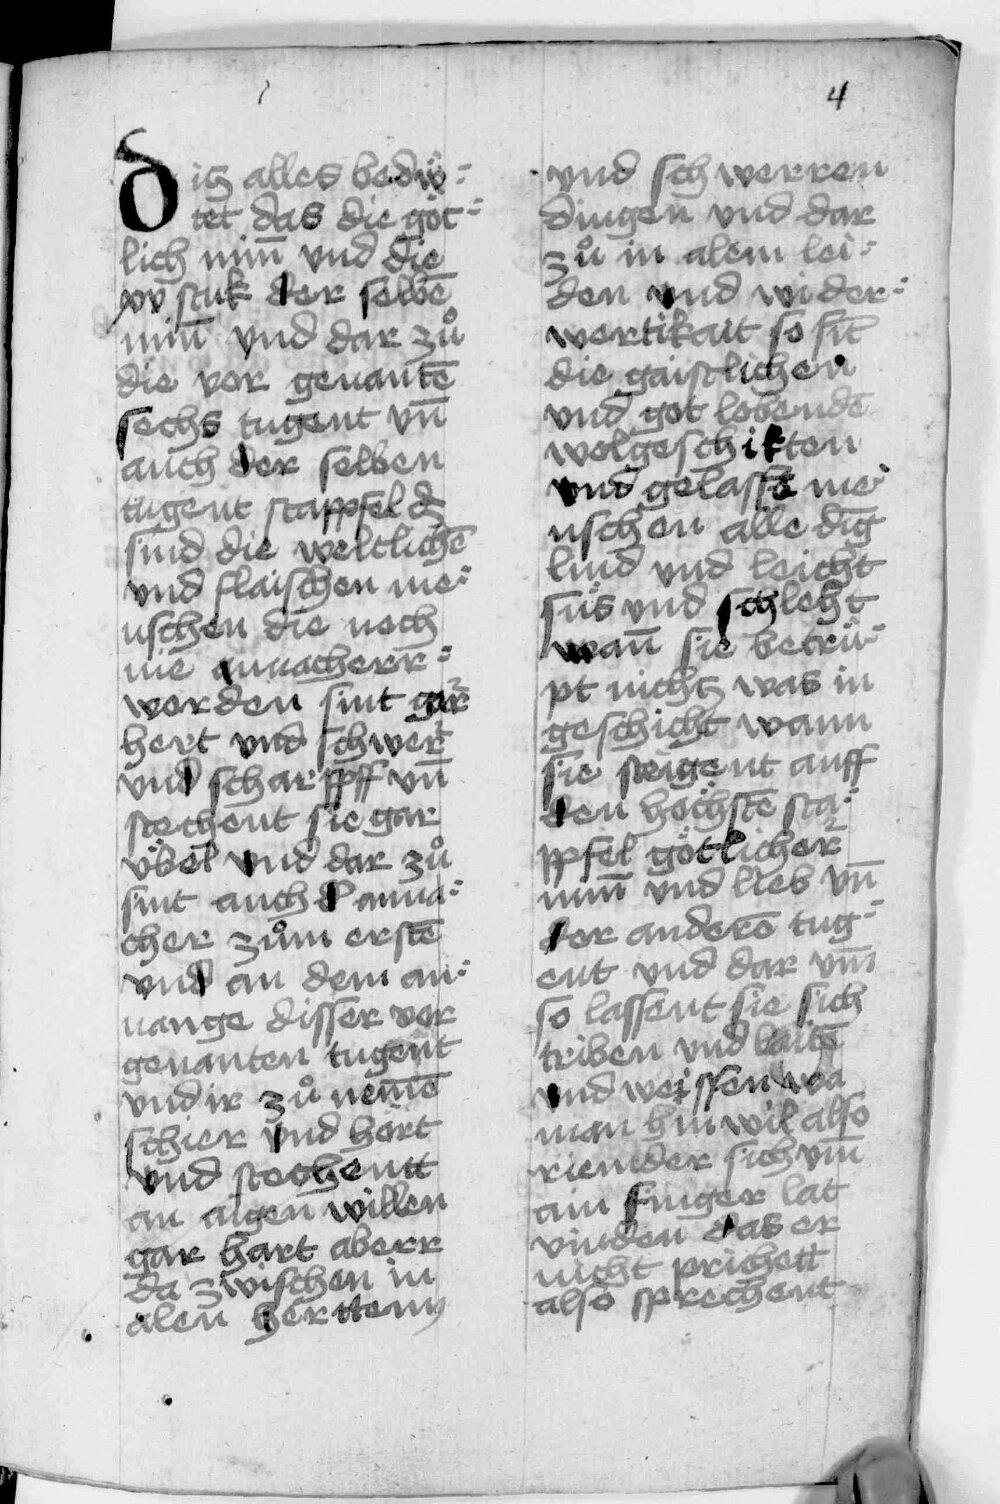 4
Diß alles bedw̓:
tet das die göt:
lich min̄ vnd die
xv stuk der selbē
min̄ vnd dar zů
die vor genantē
sechs tugent vn̄
auch der selben
tugent stappfel d
sind die weltlichē
vnd flaischen me:
nschen die noch
nie
worden sint gar
hert vnd schwer
vnd scharppff vn̄
stechent sie gar
vbel vnd dar zů
sint auch d' anua:
cher zům erstē
vnd an dem an:
uange disser vor
genanten tugent
vnd ir zů nemē
schier vnd hört
vnd stechentt
an aigen willen
gar hart aberr
da zwischen in
alen herttenn
vnd schwerren
dingen vnd dar
zů in alem lei:
den vnd wider:
wertikait so sīt
die gaistlichen
vnd got lobendē
wolgeschikten
vnd gelassē me:
nschen alle dīg
lind vnd leicht
süs vnd schleht
wan̄ sie betrü:
pt nichtz was in
geschicht wann
sie steigent auff
den höchstē sta:
ppfel götlicher
min̄ vnd lieb vn̄
der anderē tug:
ent vnd dar vm̄
so lassent sie sich
triben vnd laitē
vnd weissen wa
man hin wil also
riemder sich vm̄
ain finger lat
vinden das er
nicht prichett
also sprechent